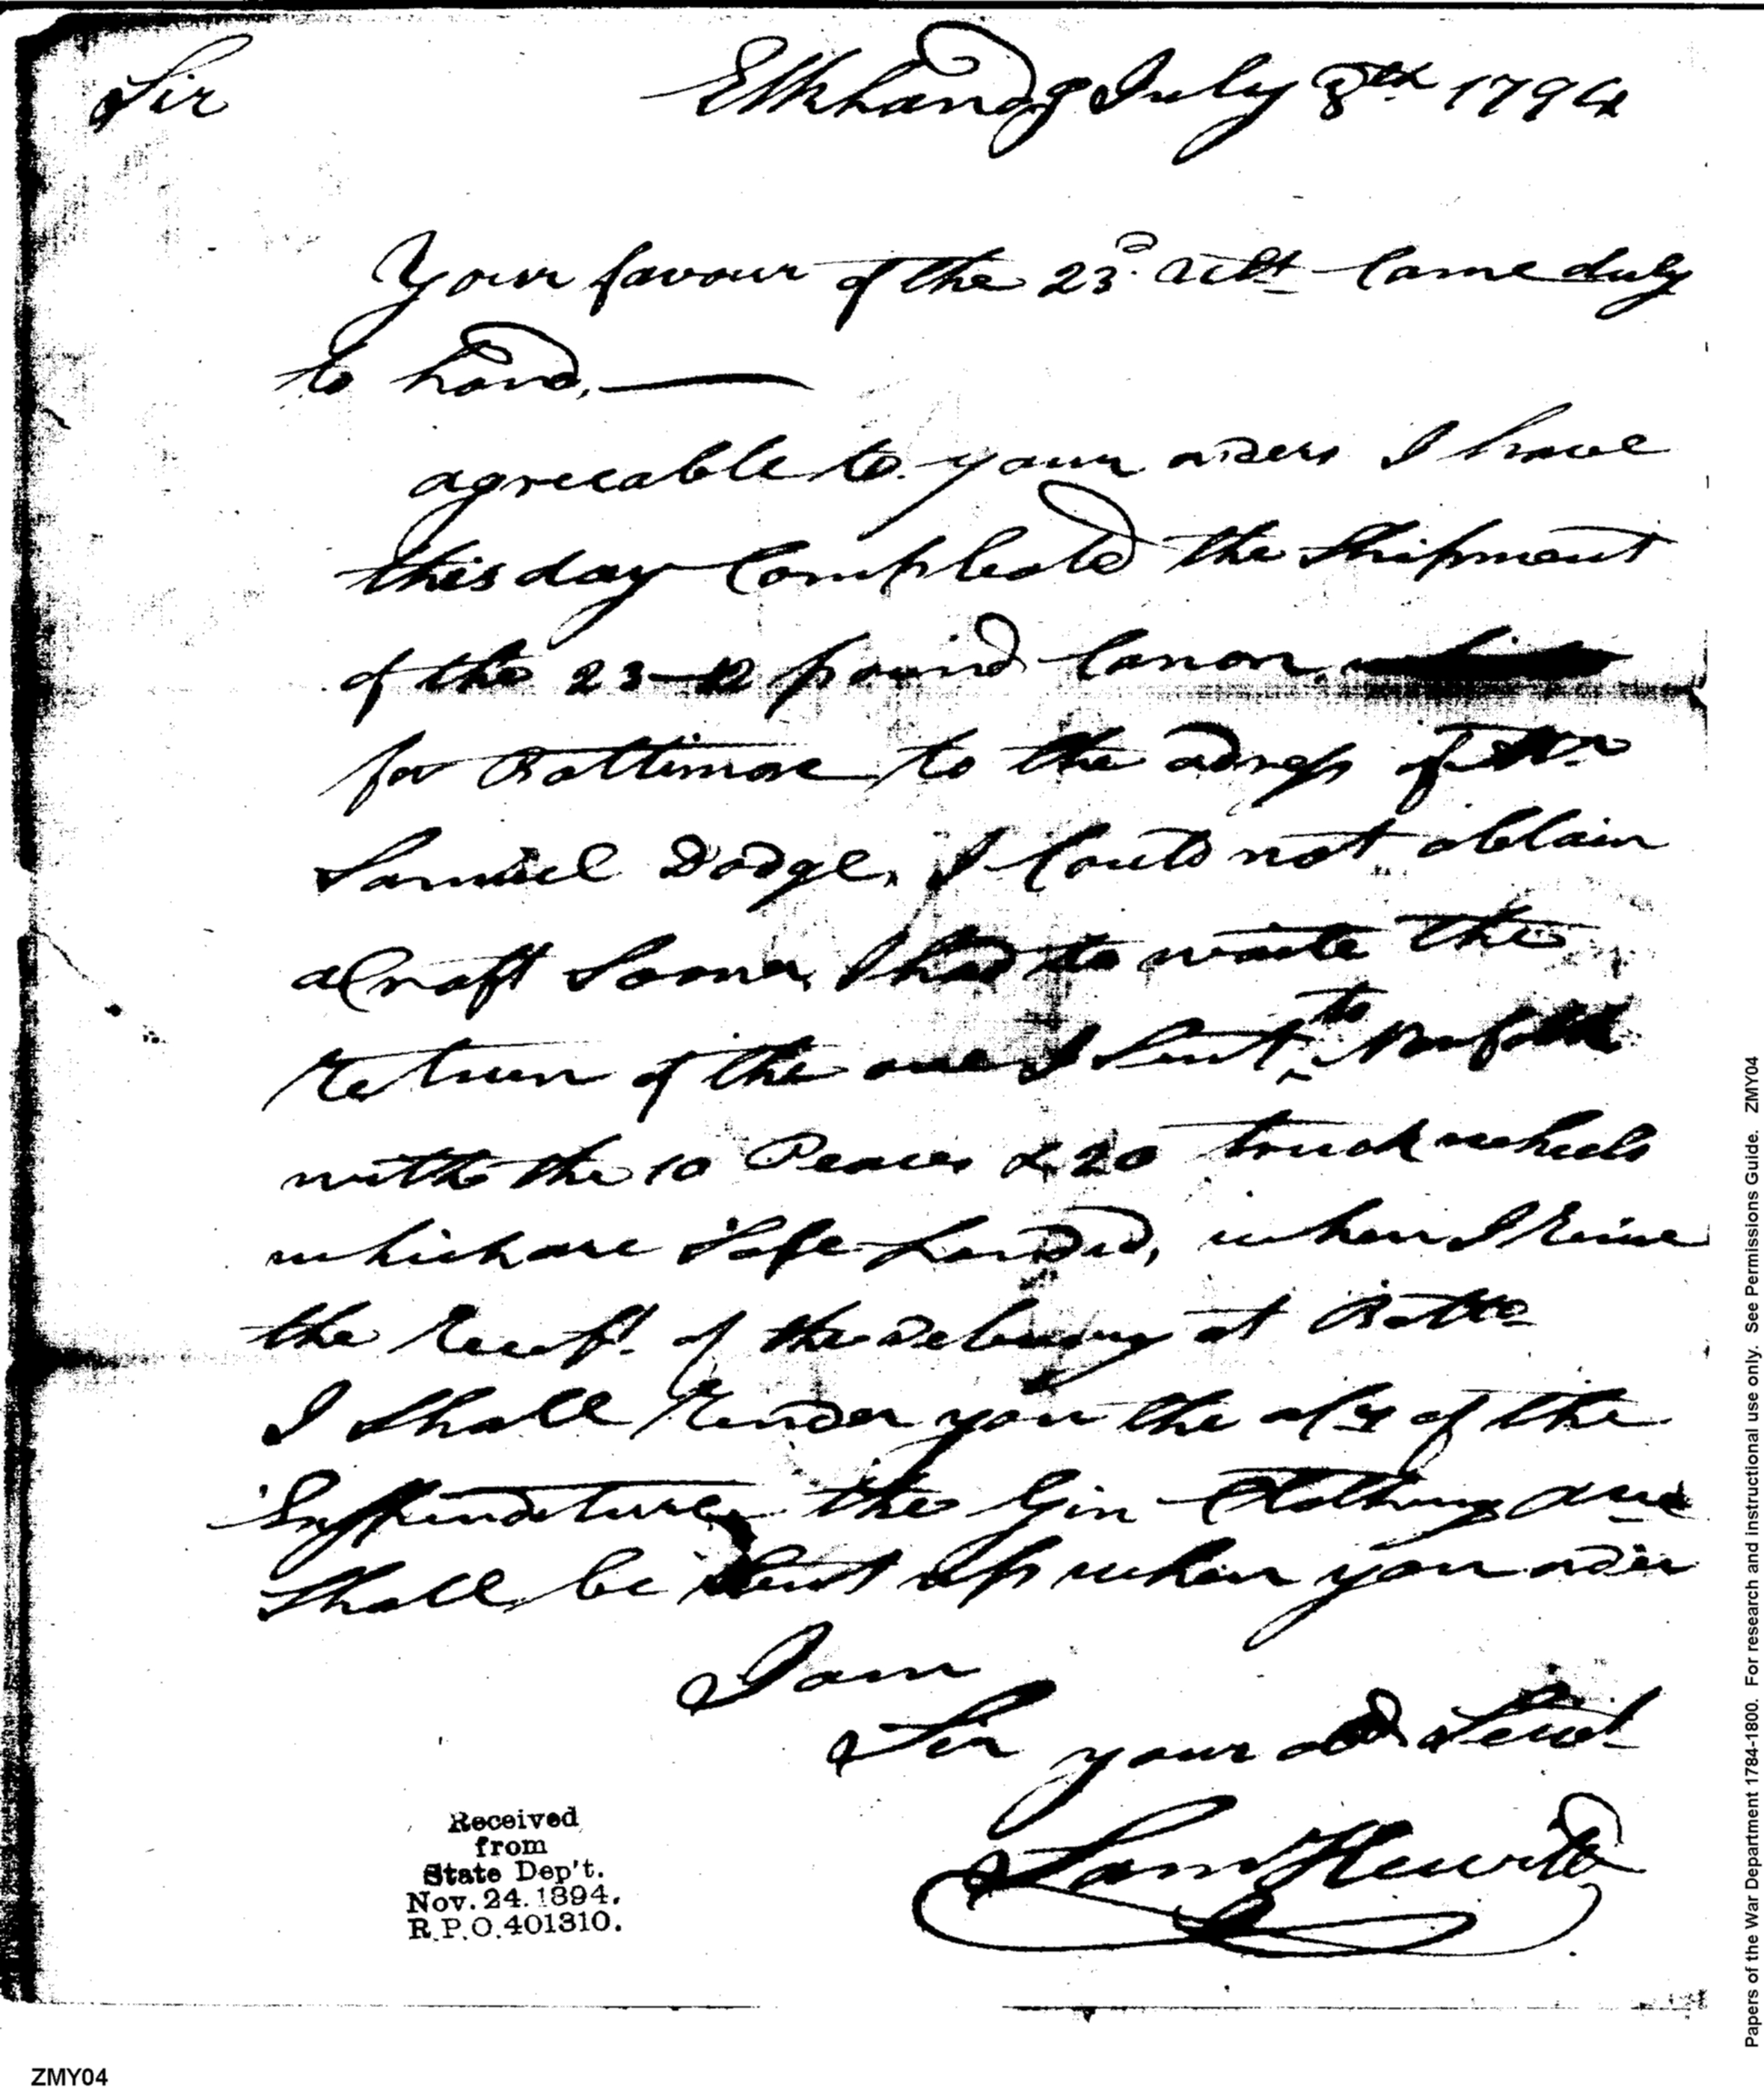 Sir Elklanding July 8th 1794
Your favour of the 23d. Ult Came duly
to hand,
agreeable to your orders I have
this day Compleated the Shipment
of the 23-12 pound Canon
for Baltimore to the adress of Mr
Samuel Dodge, I Could not obtain
a Craft Sooner I had to waite the
Return of the one I Sent to Norfolk
with the 10 Peaces & 20 truck wheels
which are Safe Landed, when I Reive
the Receipt. of the delivery at Balto
I Shall Render you the a/c of the
Expenditure, the Gin Clothing are
Shall be Sent up when you order
I am
Sir your obd Servt
Saml Hewitt
Received
from
State Dep't.
Nov. 24. 1894.
R.P.O. 401310.
ZMY04
Papers of the War Department 1784-1800. For research and instructional use only. See Permissions Guide. ZMY04